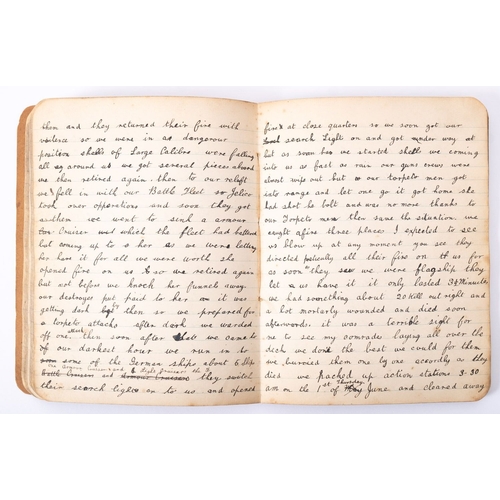 them and they returned their fire with
violence so we were in a dangerour
position shells of Large Calibre were falling
all around us we got several pieces aboard
we then retired again then to our relief
we fell in with our Battle Fleet so Jelico
took over opperations and soon they got
we went to send a armour
Cruiser which the fleet had battered
but coming up to her as we were letting
her have it for all we were worth she
opened fire on us & so we retired again
but not before we knock her funnels away
our destroyer put paid to her as it was
getting dark by then so we prepared for
a torpeto attacks after dark we warded
off one then soon after that we came to
of our darkest hour we run in to
some of the German ships about 6 Ships
6 light
Battle Cruisers and Armour Cruisers they switch
their search lights on to us and opened
fire at close quarters so we soon got our
search Light on and got under way at
but as soon has we started shell were coming
into us as fast as rain our guns crews were
about wip out but as our torpeto men got
into range and let one go it got home she
had shot he bolt and was no more thanks to
our Torpeto men then save the situation we
caught afire three places I expected to see
us blow up at any moment you see they
directed all their fire on us for
as soon as they saw we were flagship they
let us have it it only lasted 3¾ Minutes
we had something about 20 kill out right and
a lot mortarly wounded and died soon
afterwards it was a terrible sight for
me to see my comrade laying all over the
deck we done the best we could for them
we burried them one by one acordly as they
died we packed up action stations 3.30
Thursday
am on the 1st of and cleared away